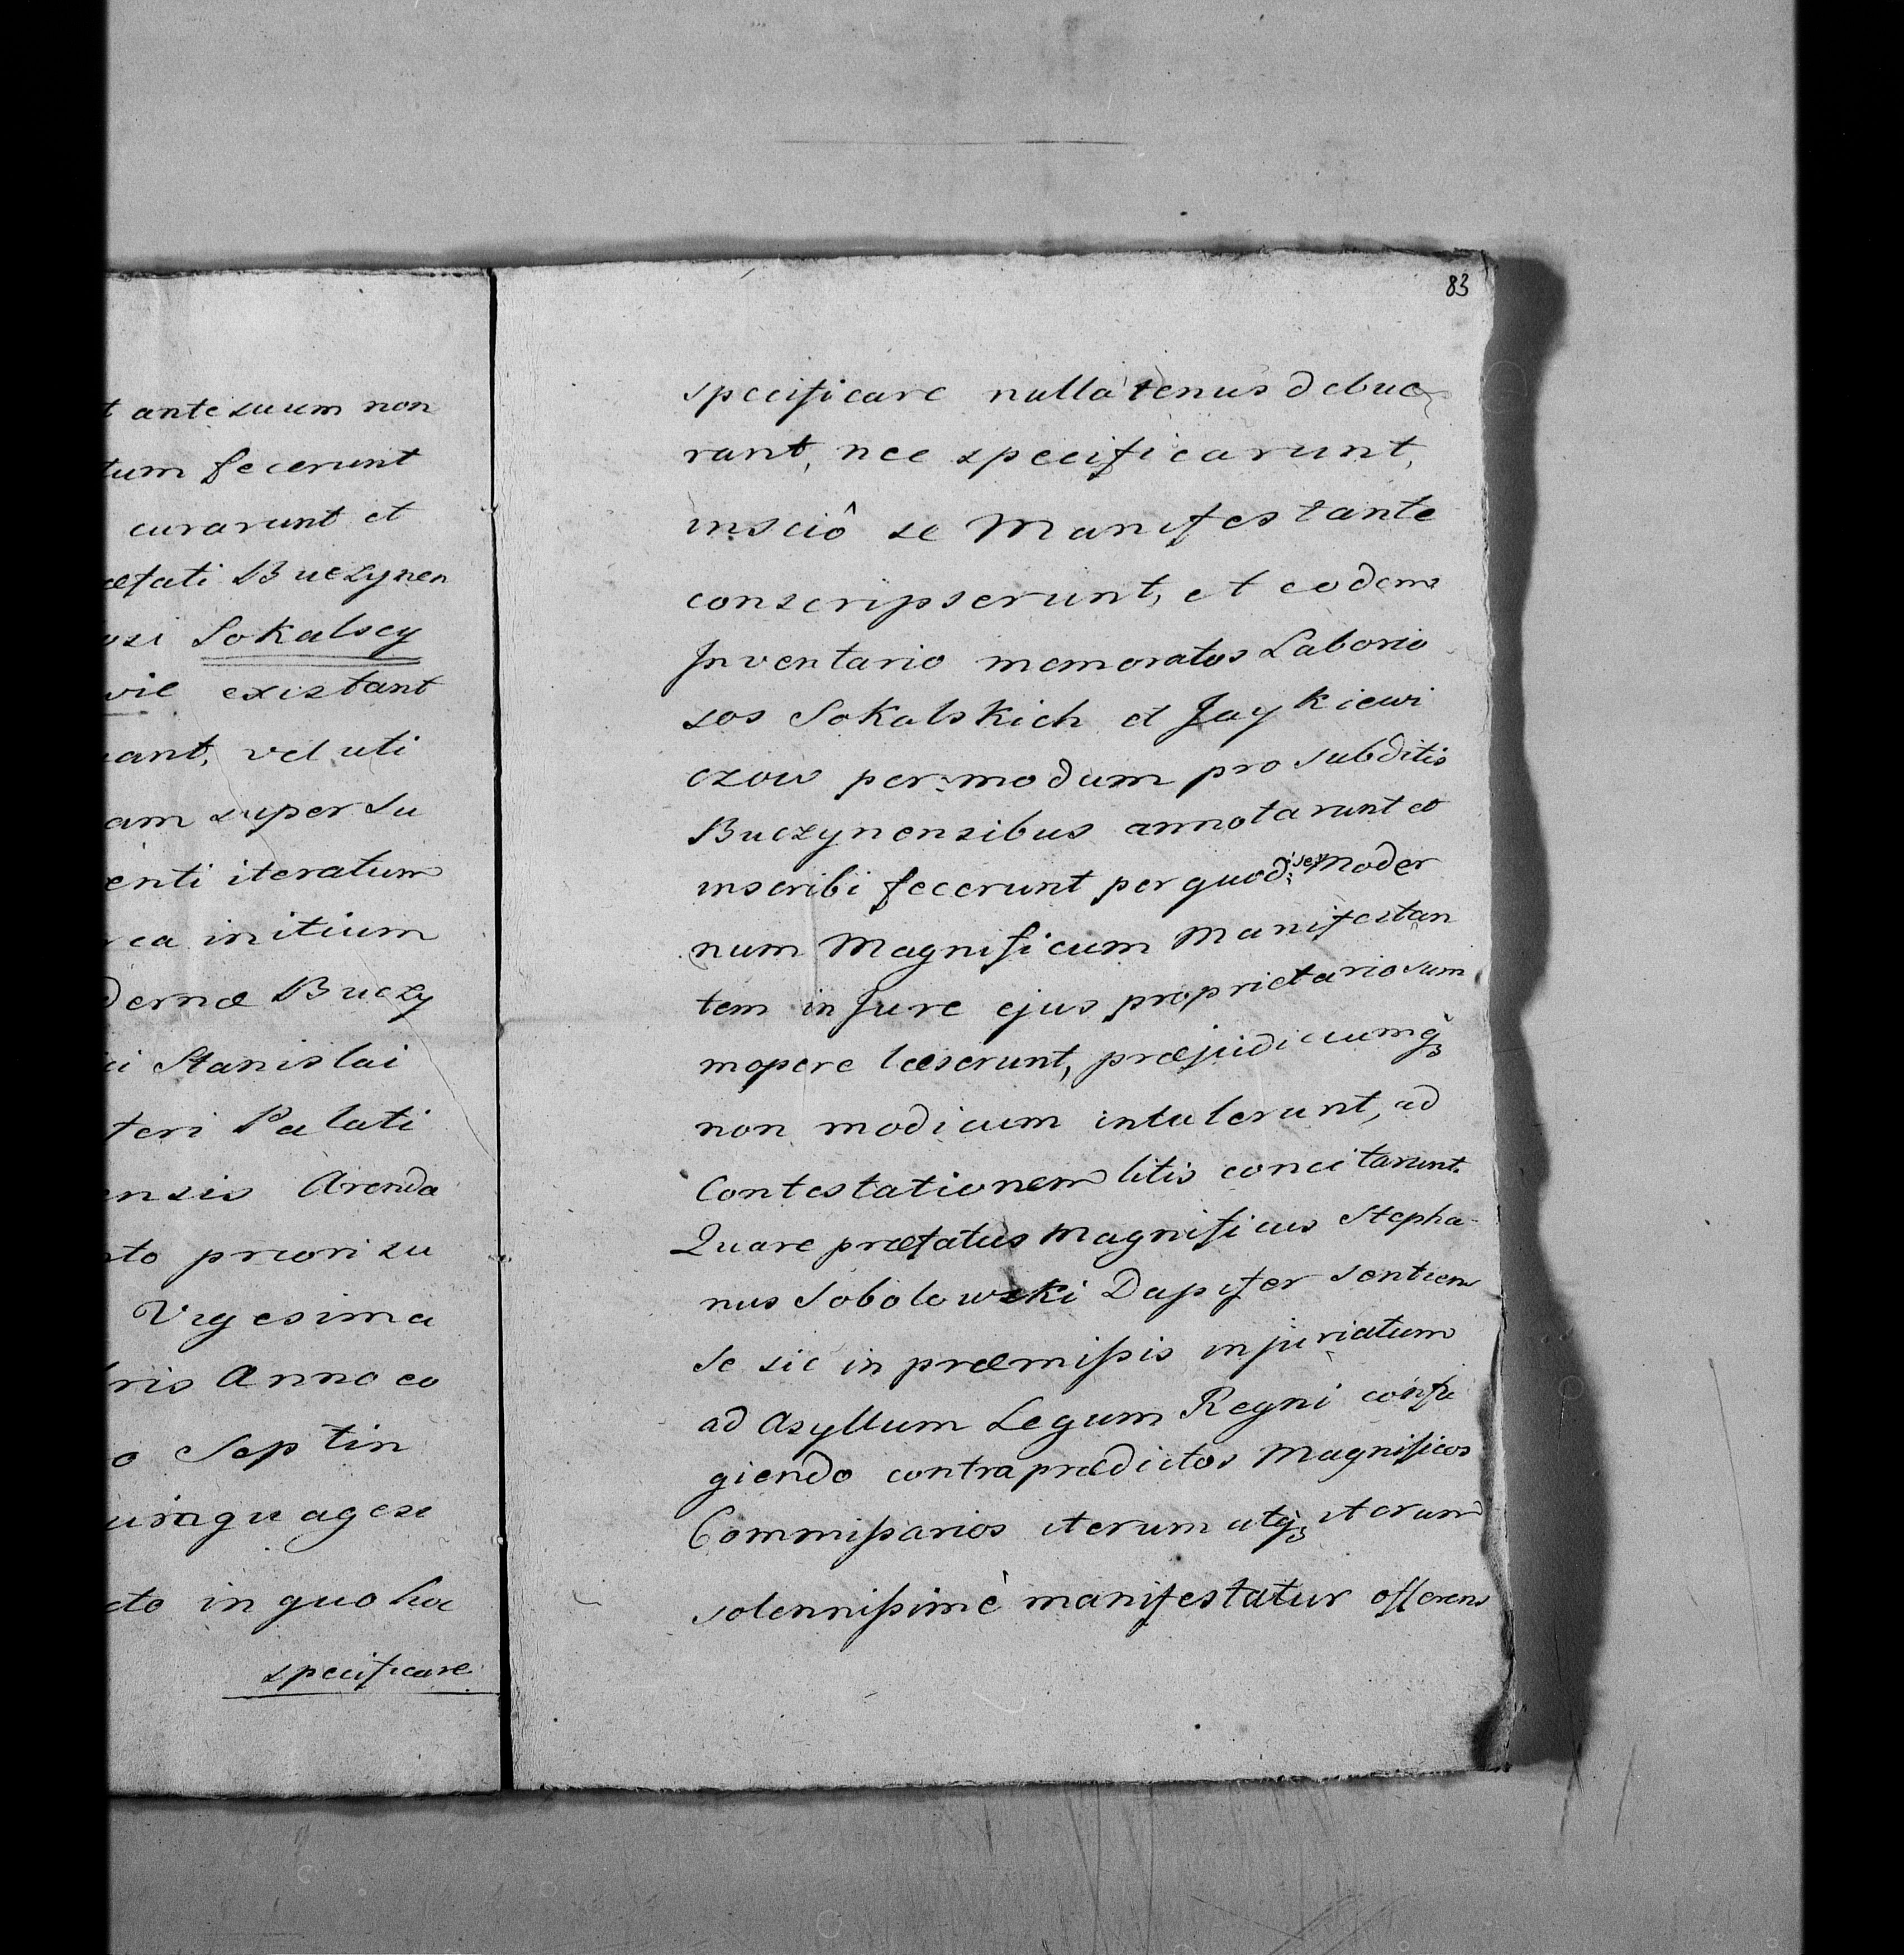 t ante suum non
tum fecerunt
curarunt et
æfati Buczynen
osi Sokalscy
wic existant
nant, veluti
am super su
enti iteratum
rea initium
dernæ Buczy
ci Stanislai
feri Palati
ensis Arenda
nto priori su
Vigesima
bris Anno eo
o Septin
uinquagesi
cto in quo hæ
specificare
83
specificare nullatenus debue
rant, nec specificarunt,
insciô se Manifestante
conscripserunt, et eodem
Inventario memoratos Laborio
sos Sokalskich et Jaykiewi
czow per modum pro subditis
Buczynensibus annotarunt et
inscribi fecerunt per quod: Moder
num Magnificum Manifestan
tem in Jure ejus proprietario sum
mopere læserunt, præjudiciumq3
non modicum intulerunt, ad
Contestationem litis concitarunt.
Quare præfatus Magnificus Stepha-
nus Sobolewski Dapifer sentiens
se sic in præmissis injuriatum
ad Asyllum Legum Regni confu
giendo contra prædictos Magnificos
Commissarios iterum atq3 iterum
solennissimè manifestatur offerens